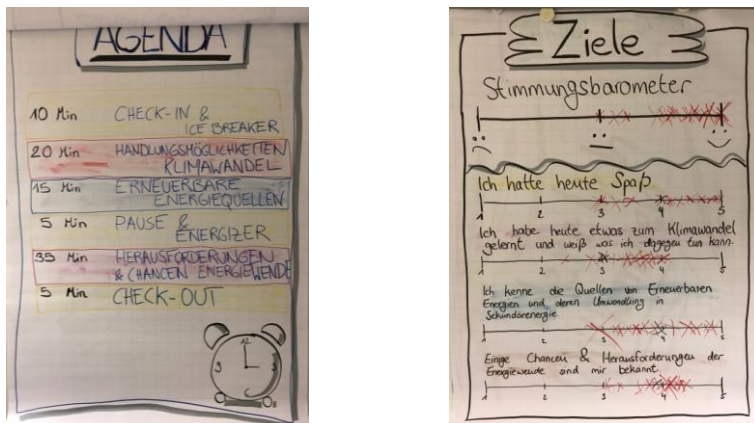 AGENDA
10 Min CHECK-IN &
ICE BREAKER
20 Min HANDLUNGSMÖGLICHKEITEN
KLIMAWANDEL
15 Min ERNEUERBARE
ENERGIEQUELLEN
5 Min PAUSE &
ENERGIZER
35 Min HERAUSFORDERUNGEN
& CHANCEN ENERGIEWENDE
5 Min CHECK-OUT
12
9 3
Ziele
Stimmungsbarometer
Ich hatte heute Spaß
1 2 3 4 5
Ich habe heute etwas zum Klimawandel
gelernt und weiß was ich dagegen tun kann.
1 2 3 4 5
Ich kenne die Quellen von Erneuerbaren
Energien und deren Umwandlung in
Sekundärenergie.
1 2 3 4 5
Einige Chancen & Herausforderungen der
Energiewende sind mir bekannt.
1 2 3 4 5